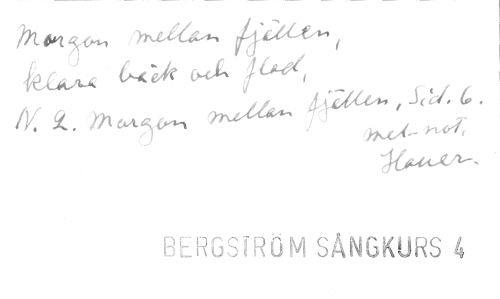 Morgon mellan fjällen,
klara bäck och flod,
N. 2. Morgon mellan fjällen, Sid. 6.
met-not.
Hauer.
BERGSTRÖM SÅNGKURS 4